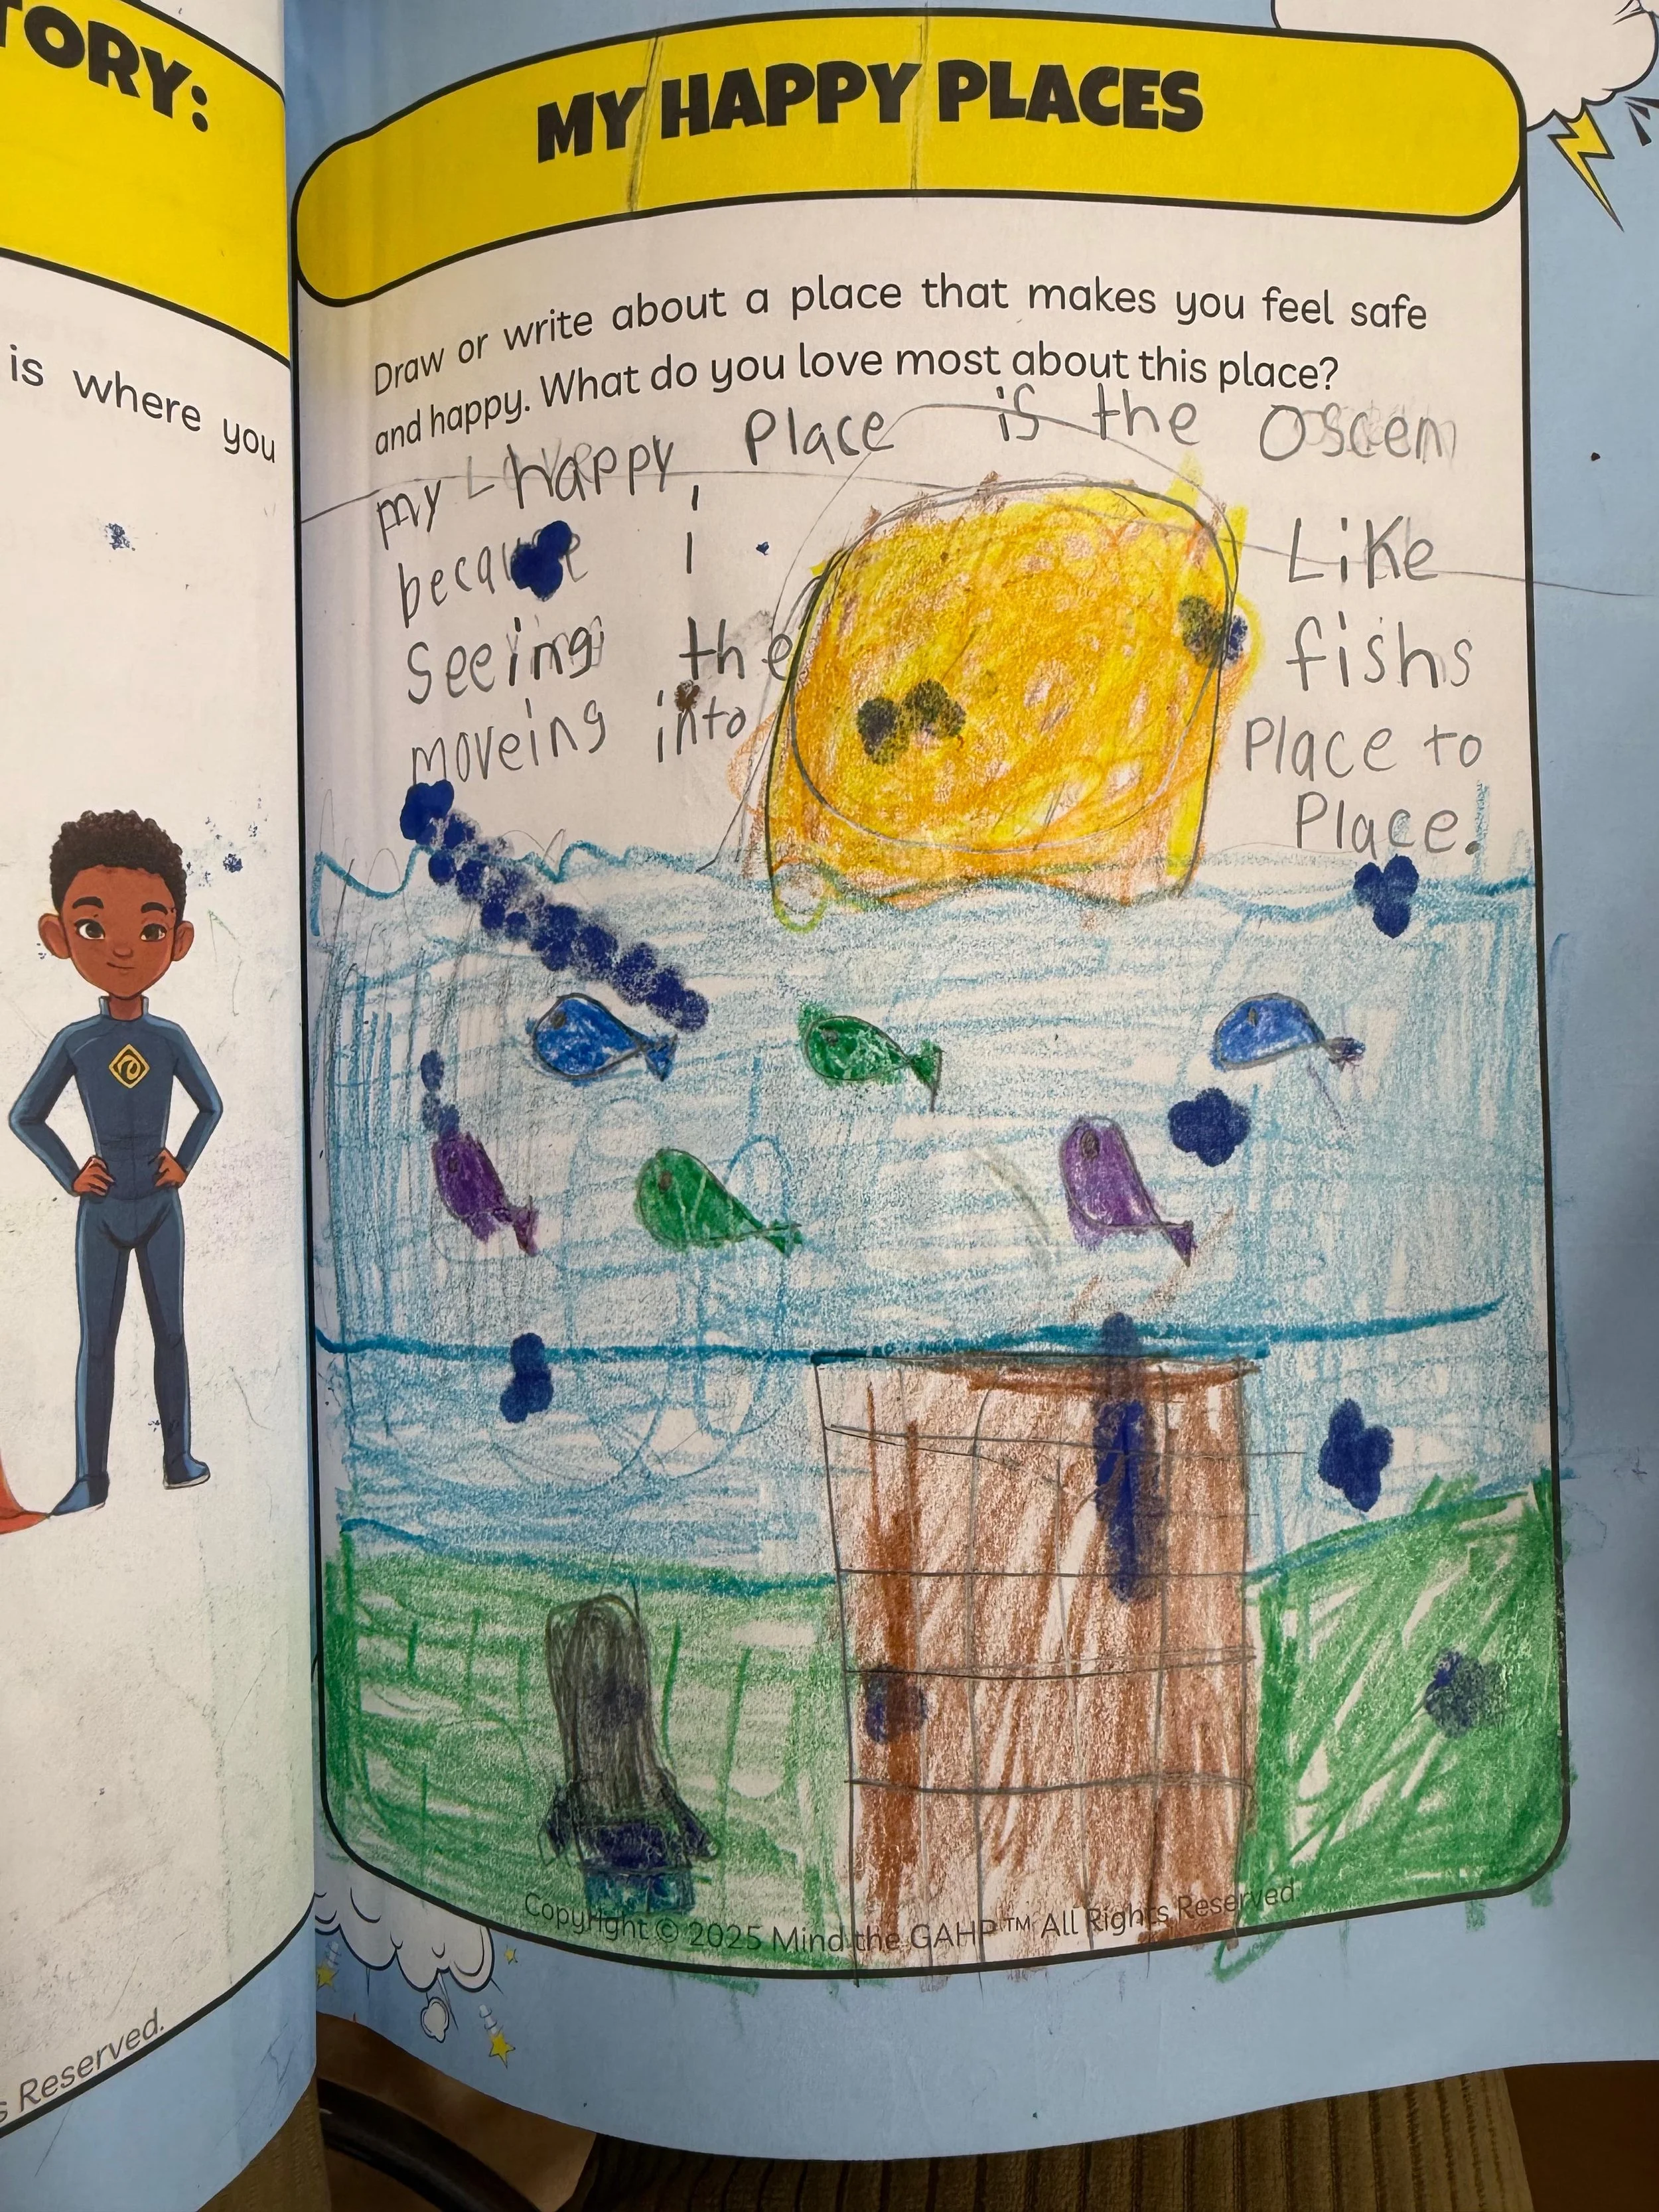 TORY:
is where you
s Reserved.
MY HAPPY PLACES
Draw or write about a place that makes you feel safe
and happy. What do you love most about this place?
my happy Place is the Oscen
because i Like
Seeing the fishs
moveing into Place to
Place.
Copyright © 2025 Mind the GAHP™ All Rights Reserved.